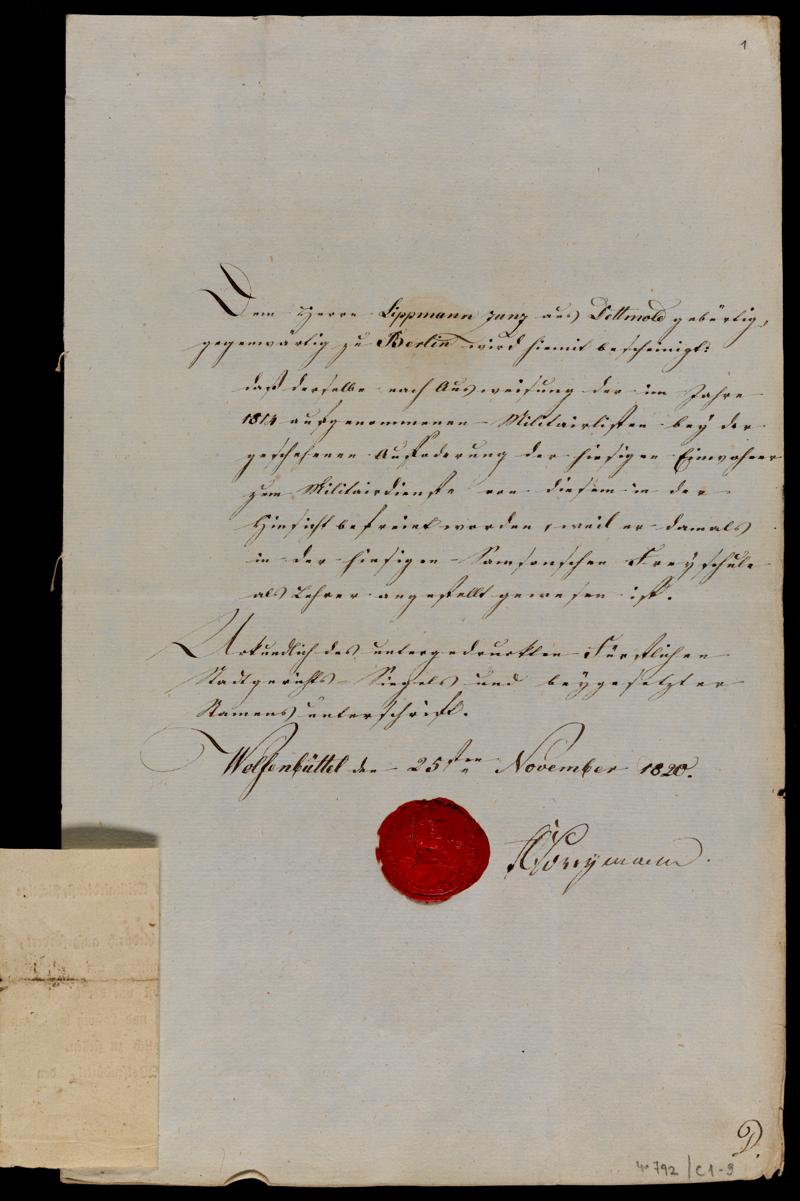 1
Dem Herrn Lippmann Zunz aus Dettmold gebürtig,
gegenwärtig zu Berlin wird hiemit bescheinigt:
daß derselbe nach Ausweisung der im Jahre
1814 aufgenommenen Militairlisten bey der
geschehenen Aufforderung der hiesigen Einwohner
zum Militairdienste von diesem in der
Hinsicht befreiet worden, weil er damals
in der hiesigen Samsonschen Freyschule
als Lehrer angestellt gewesen ist.
Urkundlich des untergedruckten Fürstlichen
Stadtgerichts Siegels und beygesetzter
Namensunterschrift.
Wolfenbüttel den 25sten November 1820.
D.
4° 792 / C1-9